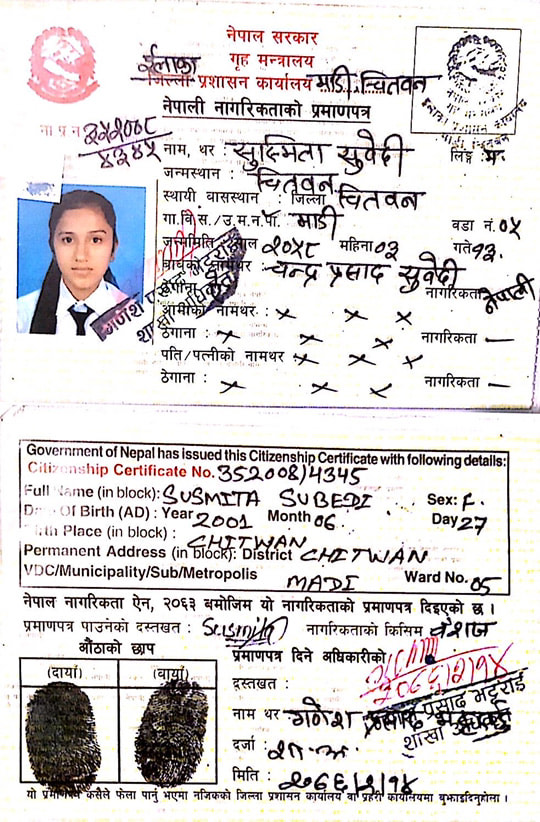 नेपाल सरकार
गृह मन्त्रालय
ईलाका
जिल्ला प्रशासन कार्यालय माडी, चितवन
नेपाली नागरिकताको प्रमाणपत्र
ना.प्र.नं. ३५२००८/४३४५
नाम, थर : सुस्मिता सुवेदी लिङ्ग : म.
जन्मस्थान : चितवन
स्थायी वासस्थान : जिल्ला चितवन
गा.वि.स./उ.म.न.पा. माडी वडा नं. ०५
जन्ममिति साल २०५८ महिना ०३ गते १३
बाबुको नामथर : चन्द्र प्रसाद सुवेदी
ठेगाना : नागरिकता नेपाली
आमाको नामथर : × × ×
ठेगाना : × × × नागरिकता —
पति/पत्नीको नामथर : × × ×
ठेगाना : × × × नागरिकता —
Government of Nepal has issued this Citizenship Certificate with following details:
Citizenship Certificate No. 352008/4345
Full Name (in block): SUSMITA SUBEDI Sex: F.
Date Of Birth (AD) : Year 2001 Month 06 Day 27
Birth Place (in block) : CHITWAN
Permanent Address (in block): District CHITWAN
VDC/Municipality/Sub/Metropolis MADI Ward No. 05
नेपाल नागरिकता ऐन, २०६३ बमोजिम यो नागरिकताको प्रमाणपत्र दिइएको छ ।
प्रमाणपत्र पाउनेको दस्तखत : Susmita नागरिकताको किसिम वंशज
औंठाको छाप
(दायाँ) (बायाँ)
प्रमाणपत्र दिने अधिकारीको
दस्तखत :
नाम थर : गणेश प्रसाद भट्टराई
शाखा
दर्जा : शा.अ.
मिति :
यो प्रमाणपत्र कसैले फेला पारी भएमा नजिकको जिल्ला प्रशासन कार्यालय वा प्रहरी कार्यालयमा बुझाइदिनुहोला ।